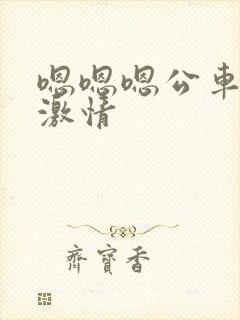 嗯嗯嗯公車
激情
齊寶香